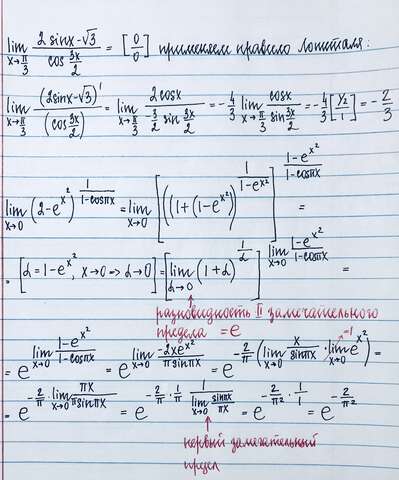 lim x→π/3 (2sinx-√3)/(cos 3x/2) = [0/0] применяем правило Лопиталя:
lim x→π/3 (2sinx-√3)'/(cos 3x/2)' = lim x→π/3 2cosx/(-3/2 sin 3x/2) = -4/3 lim x→π/3 cosx/(sin 3x/2) = -4/3 [1/2 / 1] = -2/3
lim x→0 (2-e^(x²))^(1/(1-cosπx)) = lim x→0 [((1+(1-e^(x²)))^(1/(1-e^(x²)))]^((1-e^(x²))/(1-cosπx)) =
= [α=1-e^(x²), x→0 => α→0] = [lim α→0 (1+α)^(1/α)]^(lim x→0 (1-e^(x²))/(1-cosπx)) =
разновидность II замечательного
предела = e
= e^(lim x→0 (1-e^(x²))/(1-cosπx)) = e^(lim x→0 (-2xe^(x²))/(πsinπx)) = e^(-2/π (lim x→0 x/(sinπx) · lim x→0 e^(x²))) = =1
= e^(-2/π · lim x→0 πx/(πsinπx)) = e^(-2/π · 1/π · 1/(lim x→0 sinπx/πx)) = e^(-2/π² · 1/1) = e^(-2/π²)
первый замечательный
предел